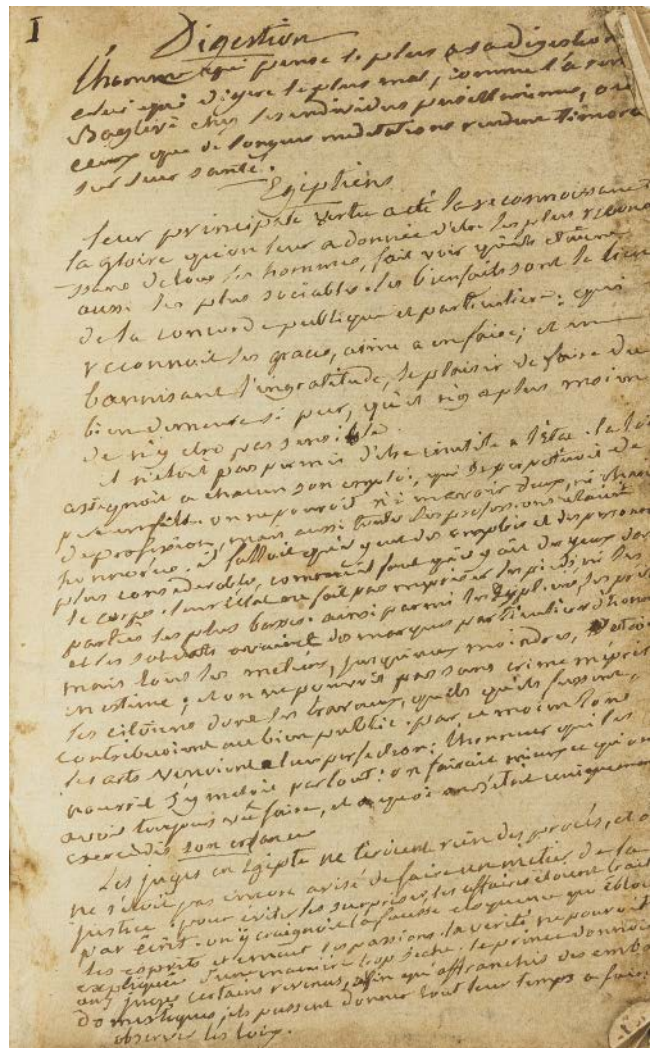 I
Digestion
L'homme qui pense le plus a sa digestion
celui qui digere le plus mal, comme l'a
Baglivi chez les individus pusillanimes, ou
ceux que de longues meditations rendent timora
sur leur santé.
Egiptiens
leur principale vertu a été la reconnoissance
la gloire qu'on leur a donnée d'etre les plus reconno
ssans de tous les hommes, fait voir qu'ils etoient
aussi les plus sociables. les bienfaits sont le lien
de la concorde publique et particuliere: qui
reconnoit les graces, aime a en faire; et en
bannissant l'ingratitude, le plaisir de faire du
bien demeure si pur, qu'il n'y a plus moien
de n'y etre pas sensible.
il n'etoit pas permis d'etre inutile a l'état. la loi
assignoit a chacun son emploi, qui se perpetuoit de
pere en fils. on ne pouvoit ni en avoir deux, ni changer
de profession, mais aussi toutes les professions etaient
honnorées. il falloit qu'il y eut des emplois et des personnes
plus considerables, comme il faut qu'il y ait des yeux dans
le corps. leur éclat ne fait pas mepriser les pieds, ni les
parties les plus basses. ainsi parmi les Egyptiens, les prêt
et les soldats avaient des marques particulieres d'honn
mais tous les metiers, jusqu'aux moindres, etoient
en estime; et on ne pouvoit pas sans crime mepris
les citoïens dont les travaux, quels qu'ils fussent,
contribuoient au bien public. par ce moien tous
les arts venoient a leur perfection: l'honneur qui les
nourrit s'y meloit partout: on faisait mieux ce qu'on
avoit toujours vû faire, et a quoi on s'étoit uniquement
exercé dès son enfance
Les juges en Egipte ne tiroient rien des procés, et o
ne s'étoit pas encore avisé de faire un métier de la
justice: pour éviter les surprises, les affaires étoient trait
par écrit. on y craignoit la fausse eloquence qui éblou
les esprits et emeut les passions. la verité ne pouvoit
expliquée d'une maniere trop seche. le prince donnoit
aux juges certains revenus, afin qu'affranchis des emba
domestiques, ils pussent donner tout leur temps a faire
observer les loix.